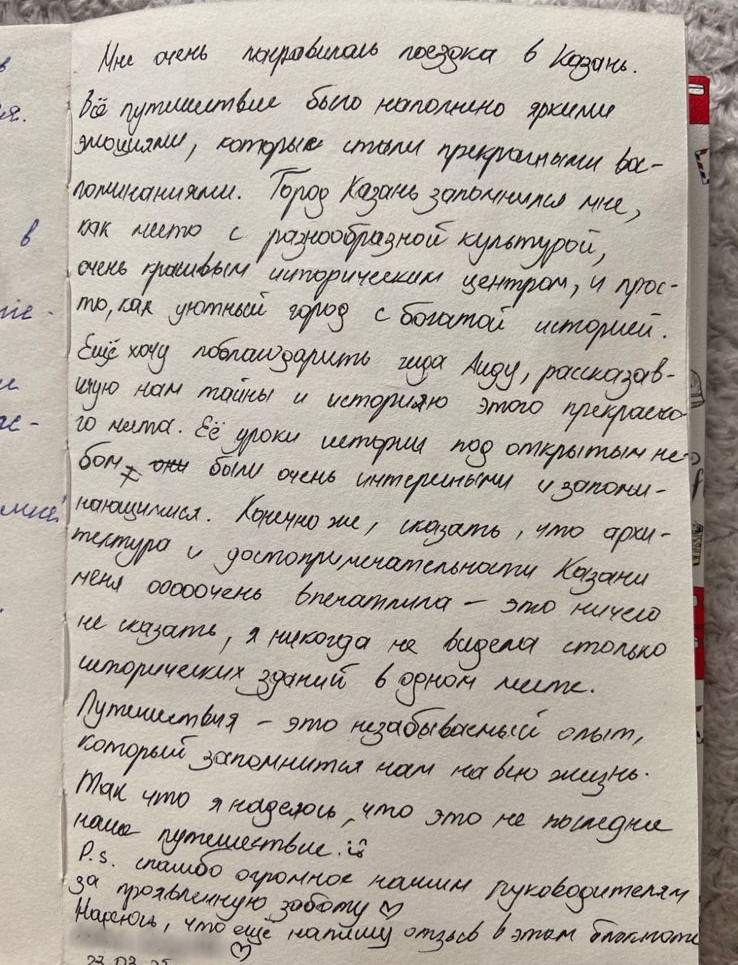 Мне очень понравилась поездка в Казань.
Всё путешествие было наполнено яркими
эмоциями, которые стали прекрасными вос-
поминаниями. Город Казань запомнился мне,
как место с разнообразной культурой,
очень красивым историческим центром, и прос-
то, как уютный город с богатой историей.
Ещё хочу поблагодарить гида Аиду, рассказав-
шую нам тайны и историю этого прекрасно-
го места. Её уроки истории под открытым не-
бом, они были очень интересными и запоми-
нающимися. Конечно же, сказать, что архи-
тектура и достопримечательности Казани
меня ооооочень впечатлила – это ничего
не сказать, я никогда не видела столько
исторических зданий в одном месте.
Путешествия – это незабываемый опыт,
который запомнится нам на всю жизнь.
Так что я надеюсь, что это не последнее
наше путешествие.
P.s. спасибо огромное нашим руководителям
за проявленную заботу ♡
Надеюсь, что ещё напишу отзыв в этом блокноте
♡